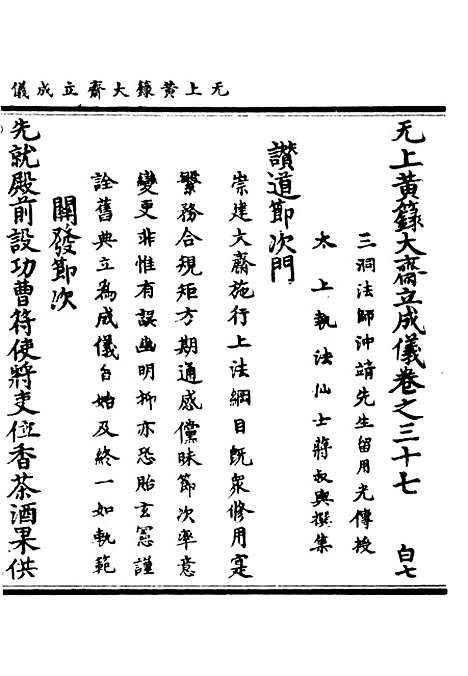 无上黃籙大齋立成儀
无上黃籙大齋立成儀卷之三十七 白七
三洞法師沖靖先生留用光傳授
太上執法仙士蔣叔輿撰集
讚道節次門
崇建大齋施行上法綱目既衆修用寔
繁務合規矩方期通感儻昧節次率意
變更非惟有誤幽明抑亦恐貽玄憲謹
詮舊典立為成儀自始及終一如軌範
關發節次
先就殿前設功曹符使將吏位香茶酒果供